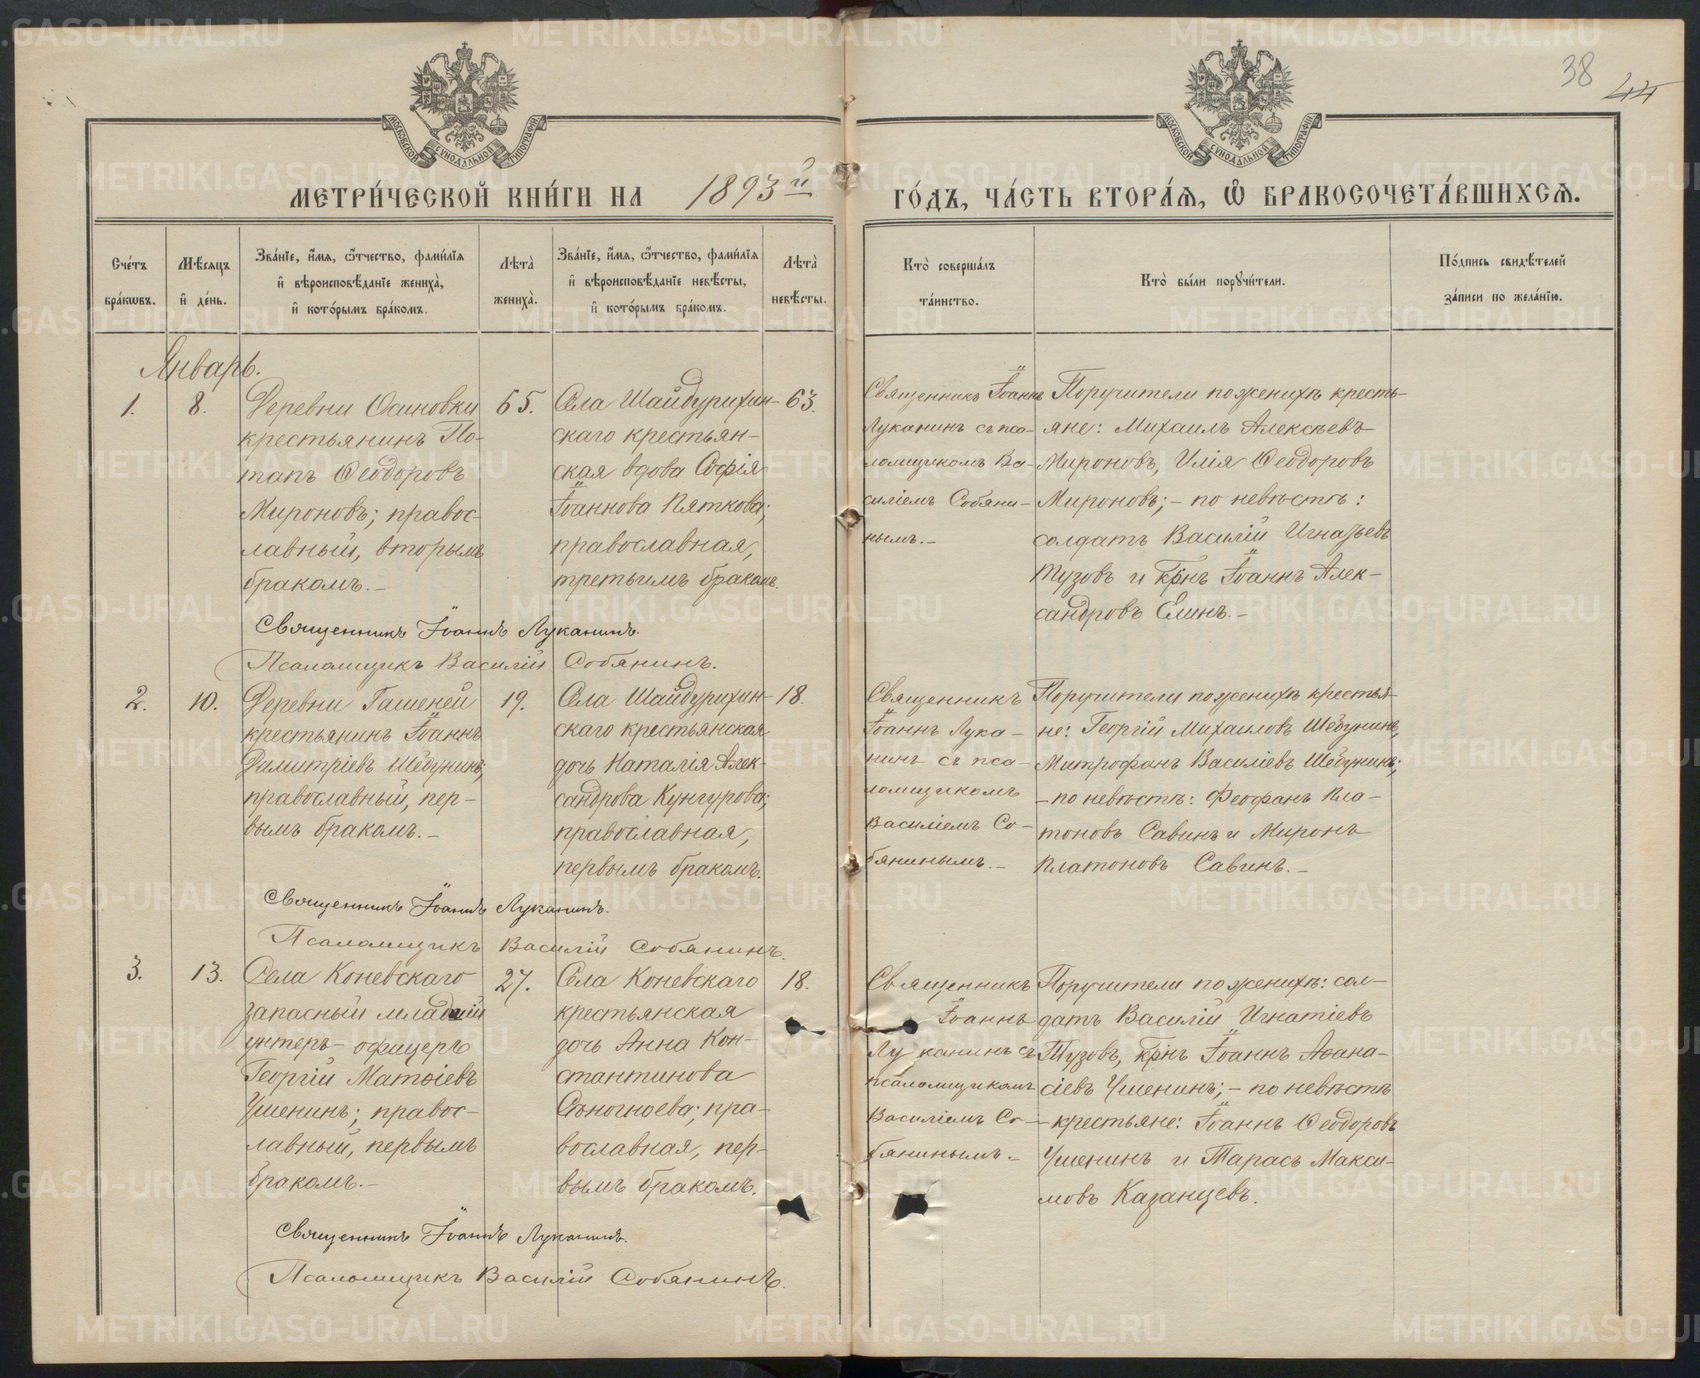 38
44
МОСКОВСКОЙ СѴНОДАЛЬНОЙ ТИПОГРАФІИ
МОСКОВСКОЙ СѴНОДАЛЬНОЙ ТИПОГРАФІИ
МЕТРИ́ЧЕСКОЙ КНИ́ГИ НА 1893й ГО́ДЪ, ЧА́СТЬ ВТОРА́Я, Ѽ БРАКОСОЧЕТА́ВШИХСЯ.
Сче́тъ
бра́кѡвъ.
Мѣ́сяцъ
и҆ де́нь.
Зва́нїе, и҆́мя, ѻ҆́тчество, фами́лїя
и҆ вѣроисповѣ́данїе жениха̀,
и҆ кото́рымъ бра́комъ.
Лѣта̀
жениха̀.
Зва́нїе, и҆́мя, ѻ҆́тчество, фами́лїя
и҆ вѣроисповѣ́данїе невѣ́сты,
и҆ кото́рымъ бра́комъ.
Лѣта̀
невѣ́сты.
Кто̀ соверша́лъ
та́инство.
Кто̀ бы́ли порꙋчи́тели.
По́дпись свидѣ́телей
за́писи по жела́нїю.
Январь.
1.
8.
Деревни Осиновки
крестьянинъ По-
тапъ Ѳеодоровъ
Мироновъ; правос-
лавный, вторымъ
бракомъ.-
65.
Села Шайдурихин-
скаго крестьян-
ская вдова Софія
Іоаннова Пяткова;
православная,
третьимъ бракомъ.
63.
Священникъ Іоаннъ
Луканинъ съ пса-
ломщикомъ Ва-
силіемъ Собяни-
нымъ.-
Поручители по женихѣ кресть-
яне: Михаилъ Алексѣевъ
Мироновъ, Илія Ѳеодоровъ
Мироновъ; - по невѣстѣ:
солдатъ Василій Игнатьевъ
Тузовъ и крнъ Іоаннъ Алек-
сандровъ Елинъ.-
Священникъ Іоаннъ Луканинъ.
Псаломщикъ Василій Собянинъ.
2.
10.
Деревни Гашеней
крестьянинъ Іоаннъ
Димитріевъ Шебунинъ;
православный, пер-
вымъ бракомъ.-
19.
Села Шайдурихин-
скаго крестьянская
дочь Наталія Алек-
сандрова Кунгурова;
православная,
первымъ бракомъ.
18.
Священникъ
Іоаннъ Лука-
нинъ съ пса-
ломщикомъ
Василіемъ Со-
бянинымъ.-
Поручители по женихѣ крестья-
не: Георгій Михаиловъ Шебунинъ,
Митрофанъ Василіевъ Шебунинъ;
- по невѣстѣ: Феофанъ Пла-
тоновъ Савинъ и Миронъ
Платоновъ Савинъ.-
Священникъ Іоаннъ Луканинъ.
Псаломщикъ Василій Собянинъ.
3.
13.
Села Коневскаго
запасный младшій
унтеръ-офицеръ
Георгій Матѳіевъ
Ушенинъ; правос-
лавный, первымъ
бракомъ.-
27.
Села Коневскаго
крестьянская
дочь Анна Кон-
стантинова
Сѣногноева; пра-
вославная, пер-
вымъ бракомъ.
18.
Священникъ
Іоаннъ
Луканинъ съ
псаломщикомъ
Василіемъ Со-
бянинымъ.-
Поручители по женихѣ: сол-
датъ Василій Игнатіевъ
Тузовъ, крнъ Іоаннъ Аѳана-
сіевъ Ушенинъ; - по невѣстѣ
- крестьяне: Іоаннъ Ѳеодоровъ
Ушенинъ и Тарасъ Макси-
мовъ Казанцевъ.
Священникъ Іоаннъ Луканинъ.
Псаломщикъ Василій Собянинъ.
METRIKI.GASO-URAL.RU